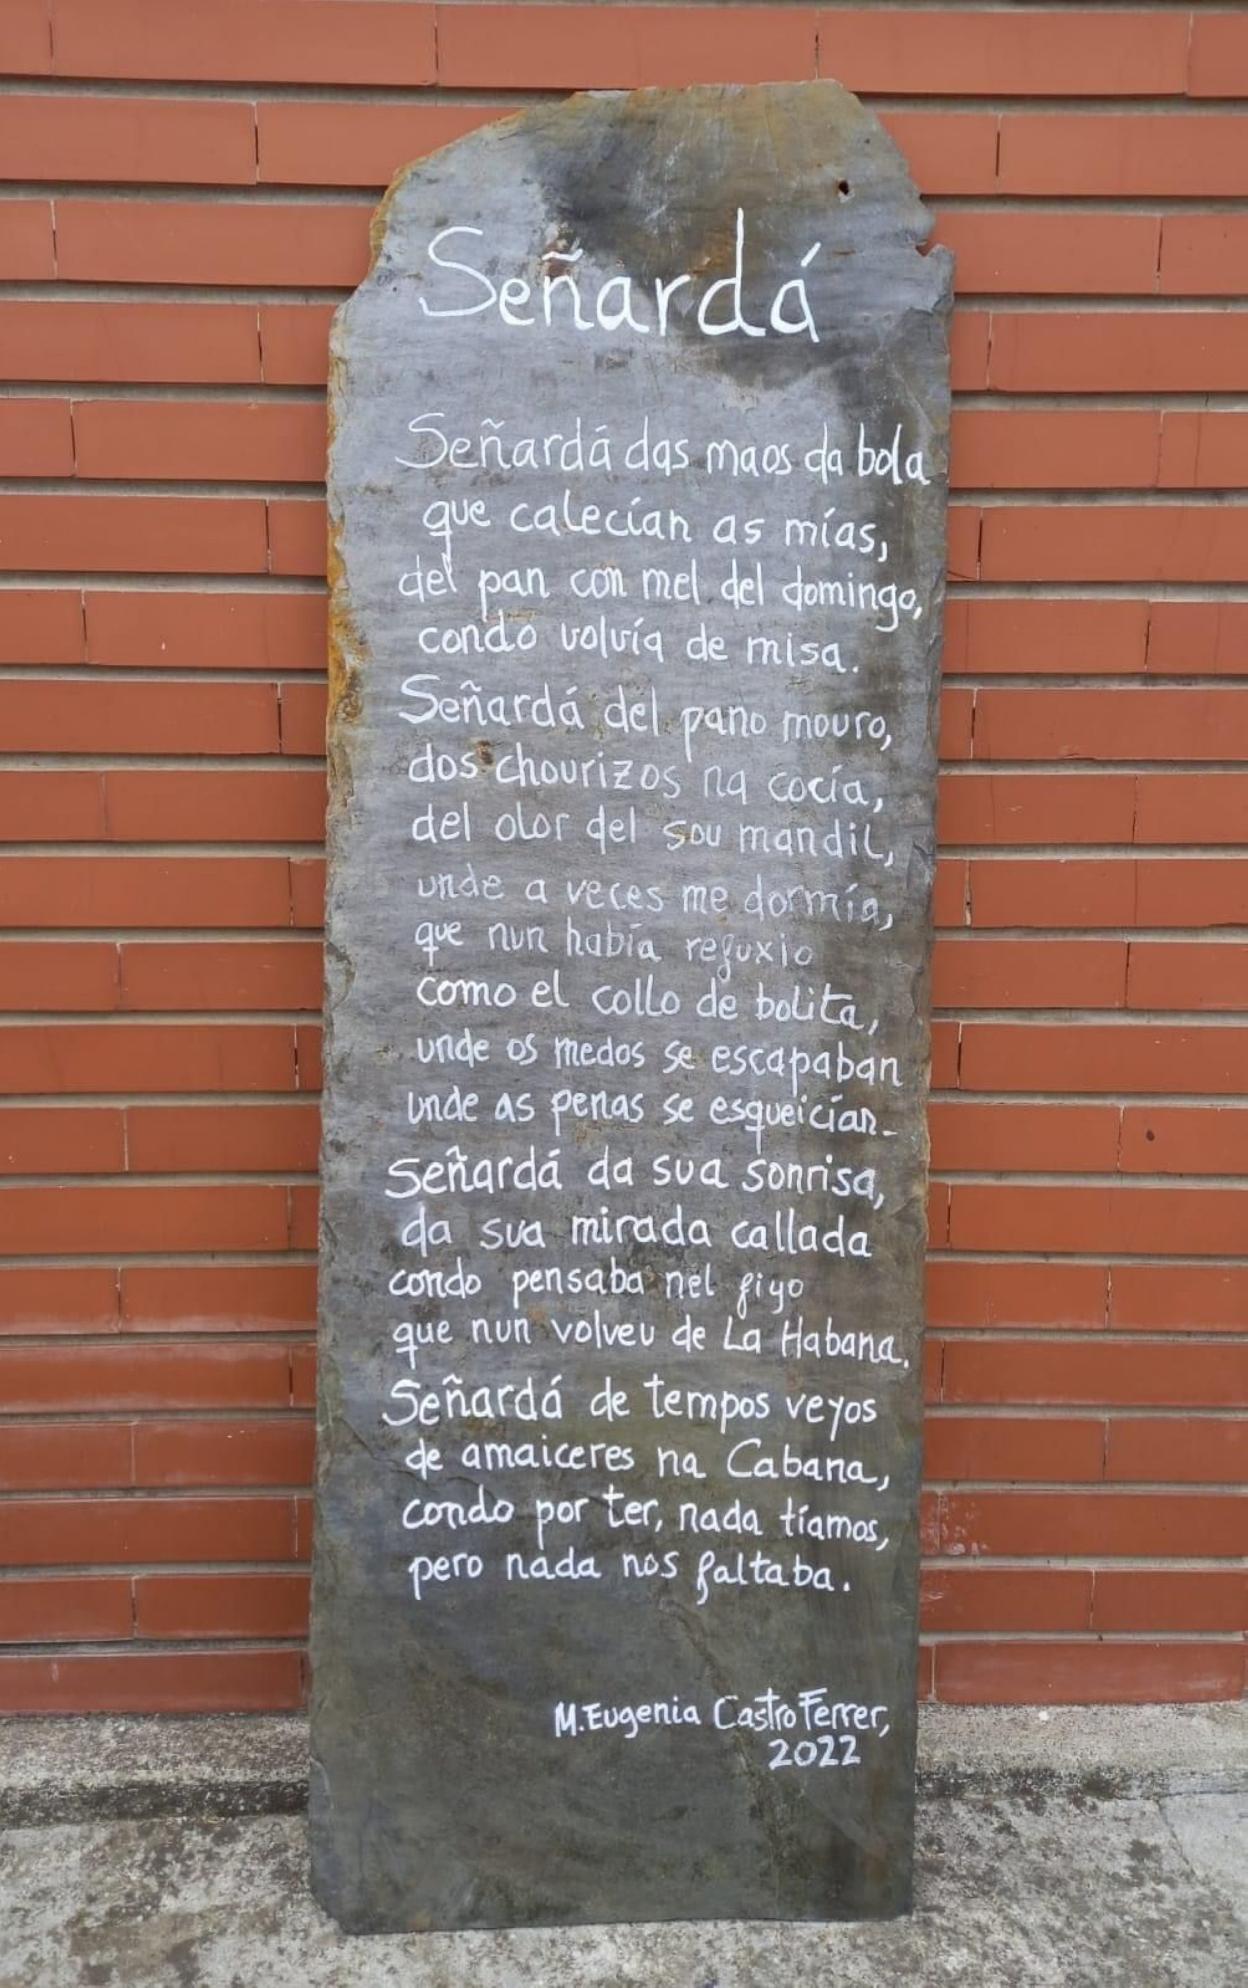 Señardá
Señardá das maos da bola
que calecían as mías,
del pan con mel del domingo,
condo volvía de misa.
Señardá del pano mouro,
dos chourizos na cocía,
del olor del sou mandil,
unde a veces me dormía,
que nun había refuxio
como el collo de bolita,
unde os medos se escapaban
unde as penas se esqueicían.
Señardá da sua sonrisa,
da sua mirada callada
condo pensaba nel fiyo
que nun volveu de La Habana.
Señardá de tempos veyos
de amaiceres na Cabana,
condo por ter, nada tíamos,
pero nada nos faltaba.
M. Eugenia Castro Ferrer,
2022